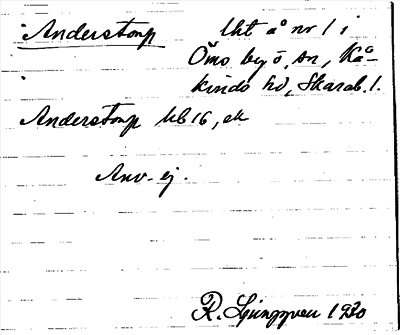 Anderstorp lht å nr 1 i
Ömo by o. sn, Kå-
kinds hd, Skarab. l.
Anderstorp Ub 16, ek
Anv. ej.
R. Ljunggren 1930